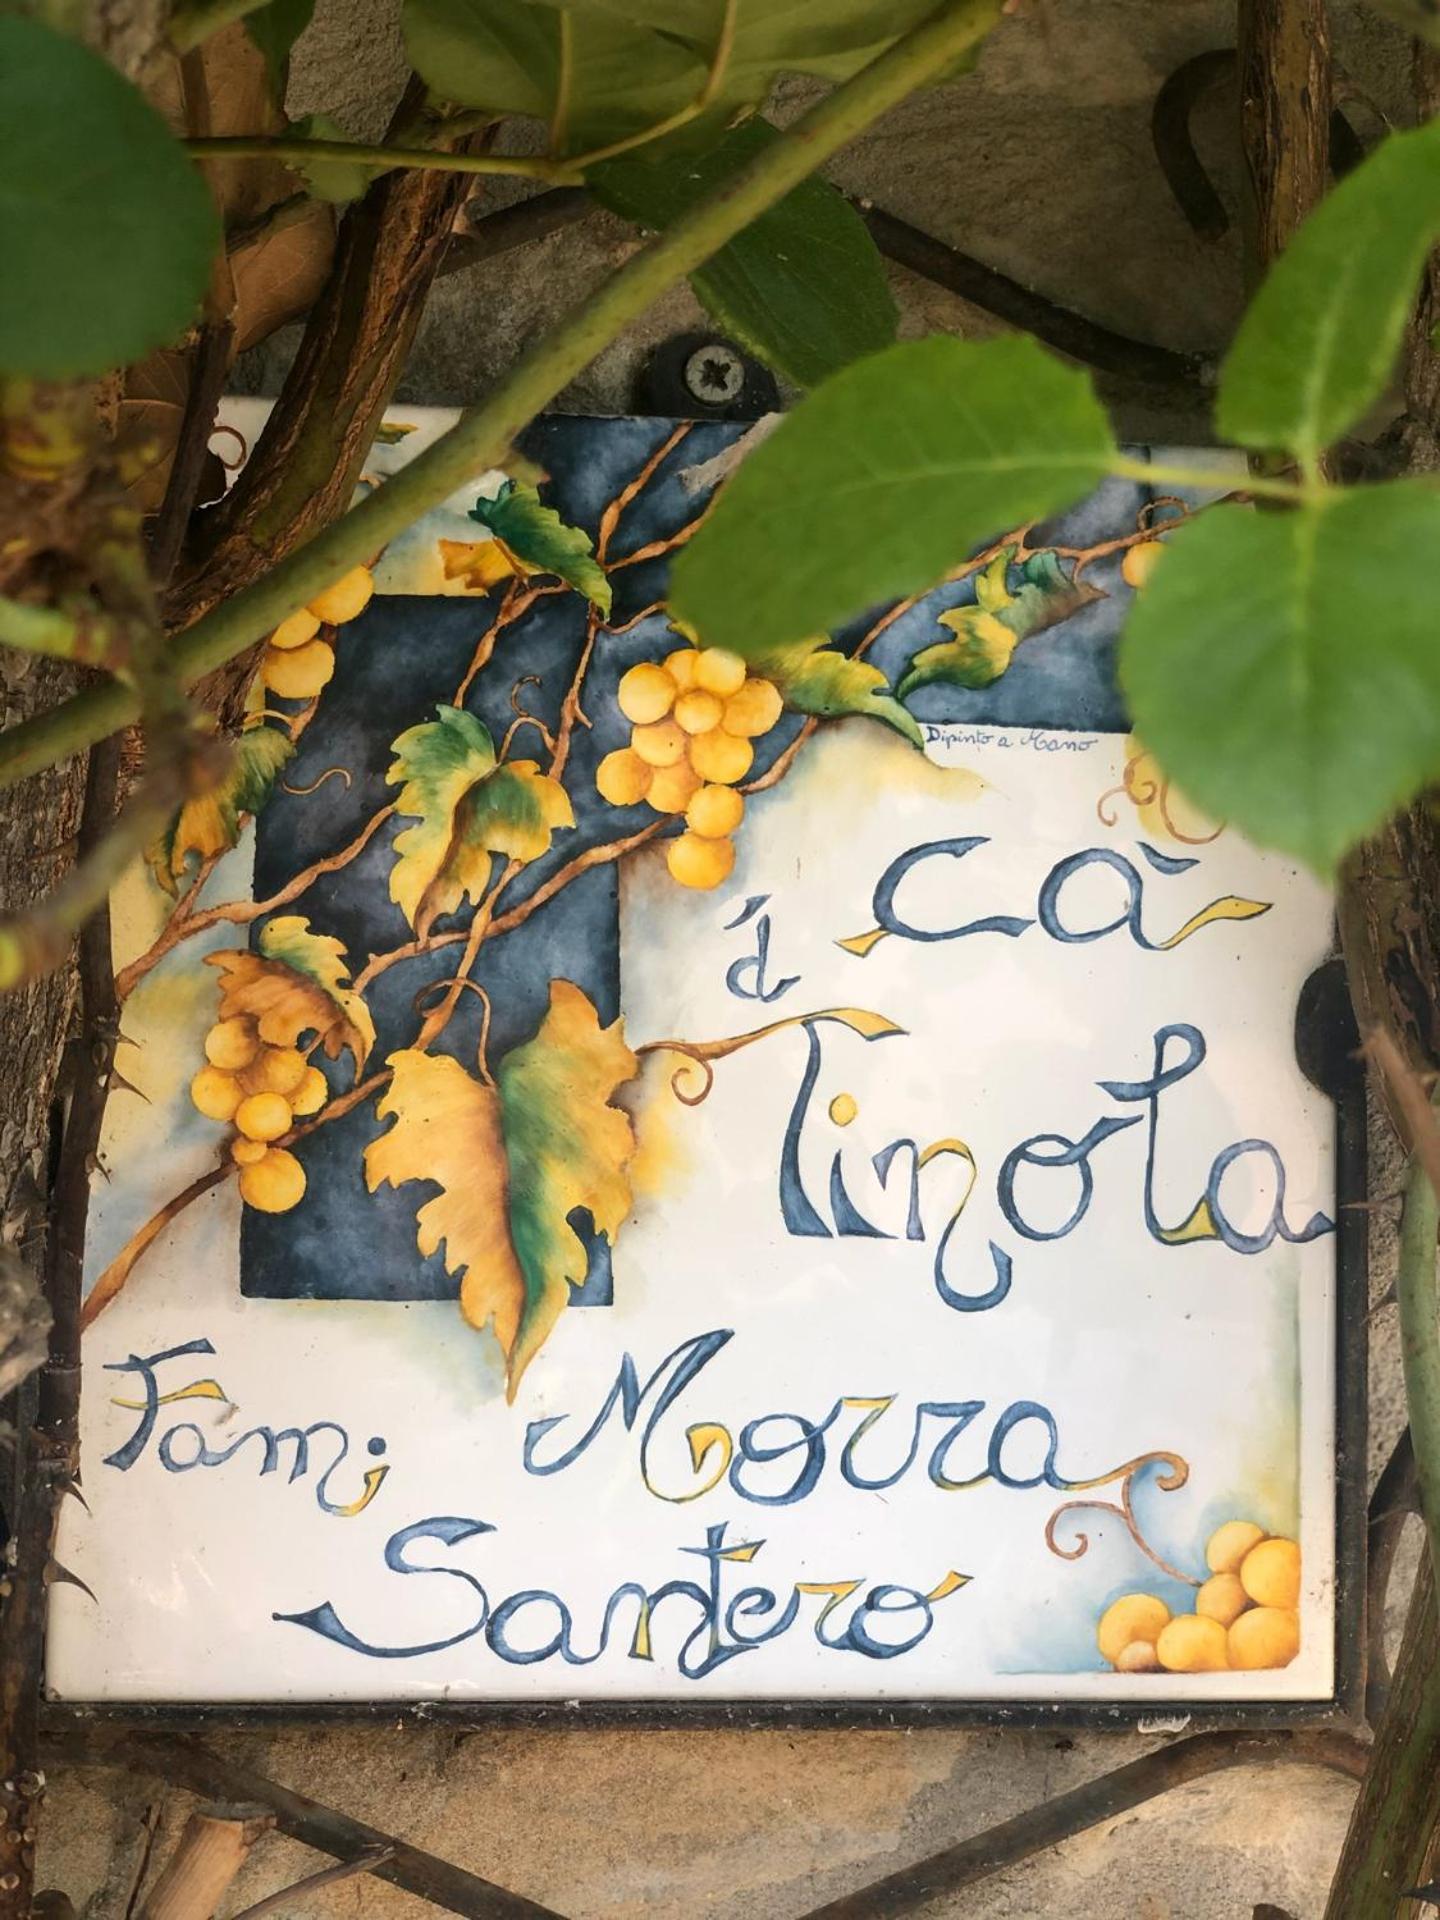 Dipinto a Mano
cà
'd
Tinola
Fam. Morra
Santero